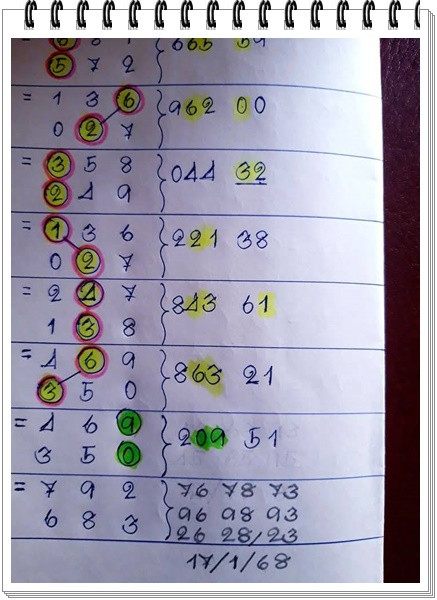 6 8 1 } 665 59
5 7 2
= 1 3 6 } 962 00
0 2 7
= 3 5 8 } 044 32
2 4 9
= 1 3 6 } 221 38
0 2 7
= 2 4 7 } 843 61
1 3 8
= 4 6 9 } 863 21
3 5 0
= 4 6 9 } 209 51
3 5 0
= 7 9 2 } 76 78 73
6 8 3 96 98 93
26 28/23
17/1/68